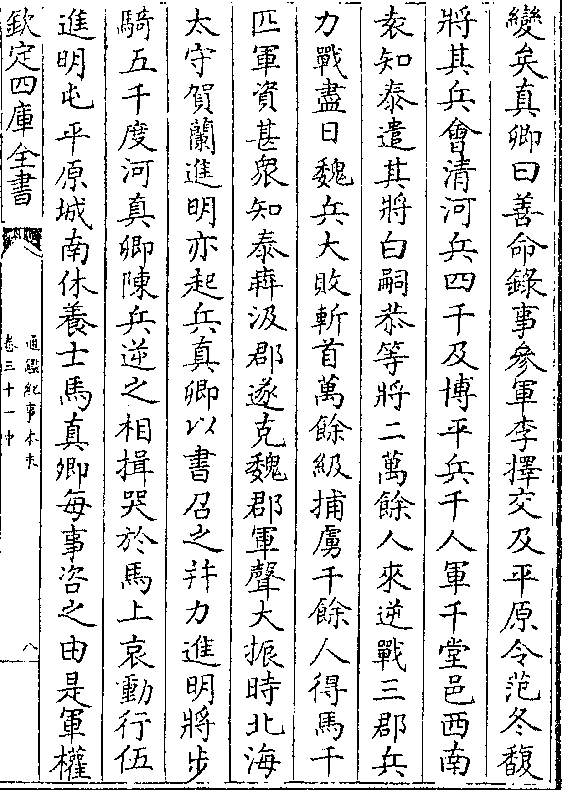 變矣真卿曰善命錄事參軍李擇交及平原令范冬馥
將其兵會清河兵四千及博平兵千人軍千堂邑西南
袁知泰遣其將白嗣恭等將二萬餘人來逆戰三郡兵
力戰盡日魏兵大敗斬首萬餘級捕虜千餘人得馬千
匹軍資甚衆知泰犇汲郡遂克魏郡軍聲大振時北海
太守賀蘭進明亦起兵真卿以書召之并力進明將步
騎五千度河真卿陳兵逆之相揖哭於馬上哀動行伍
進明屯平原城南休養士馬真卿每事咨之由是軍權
欽定四庫全書
通鑑紀事本末
卷三十一中
八